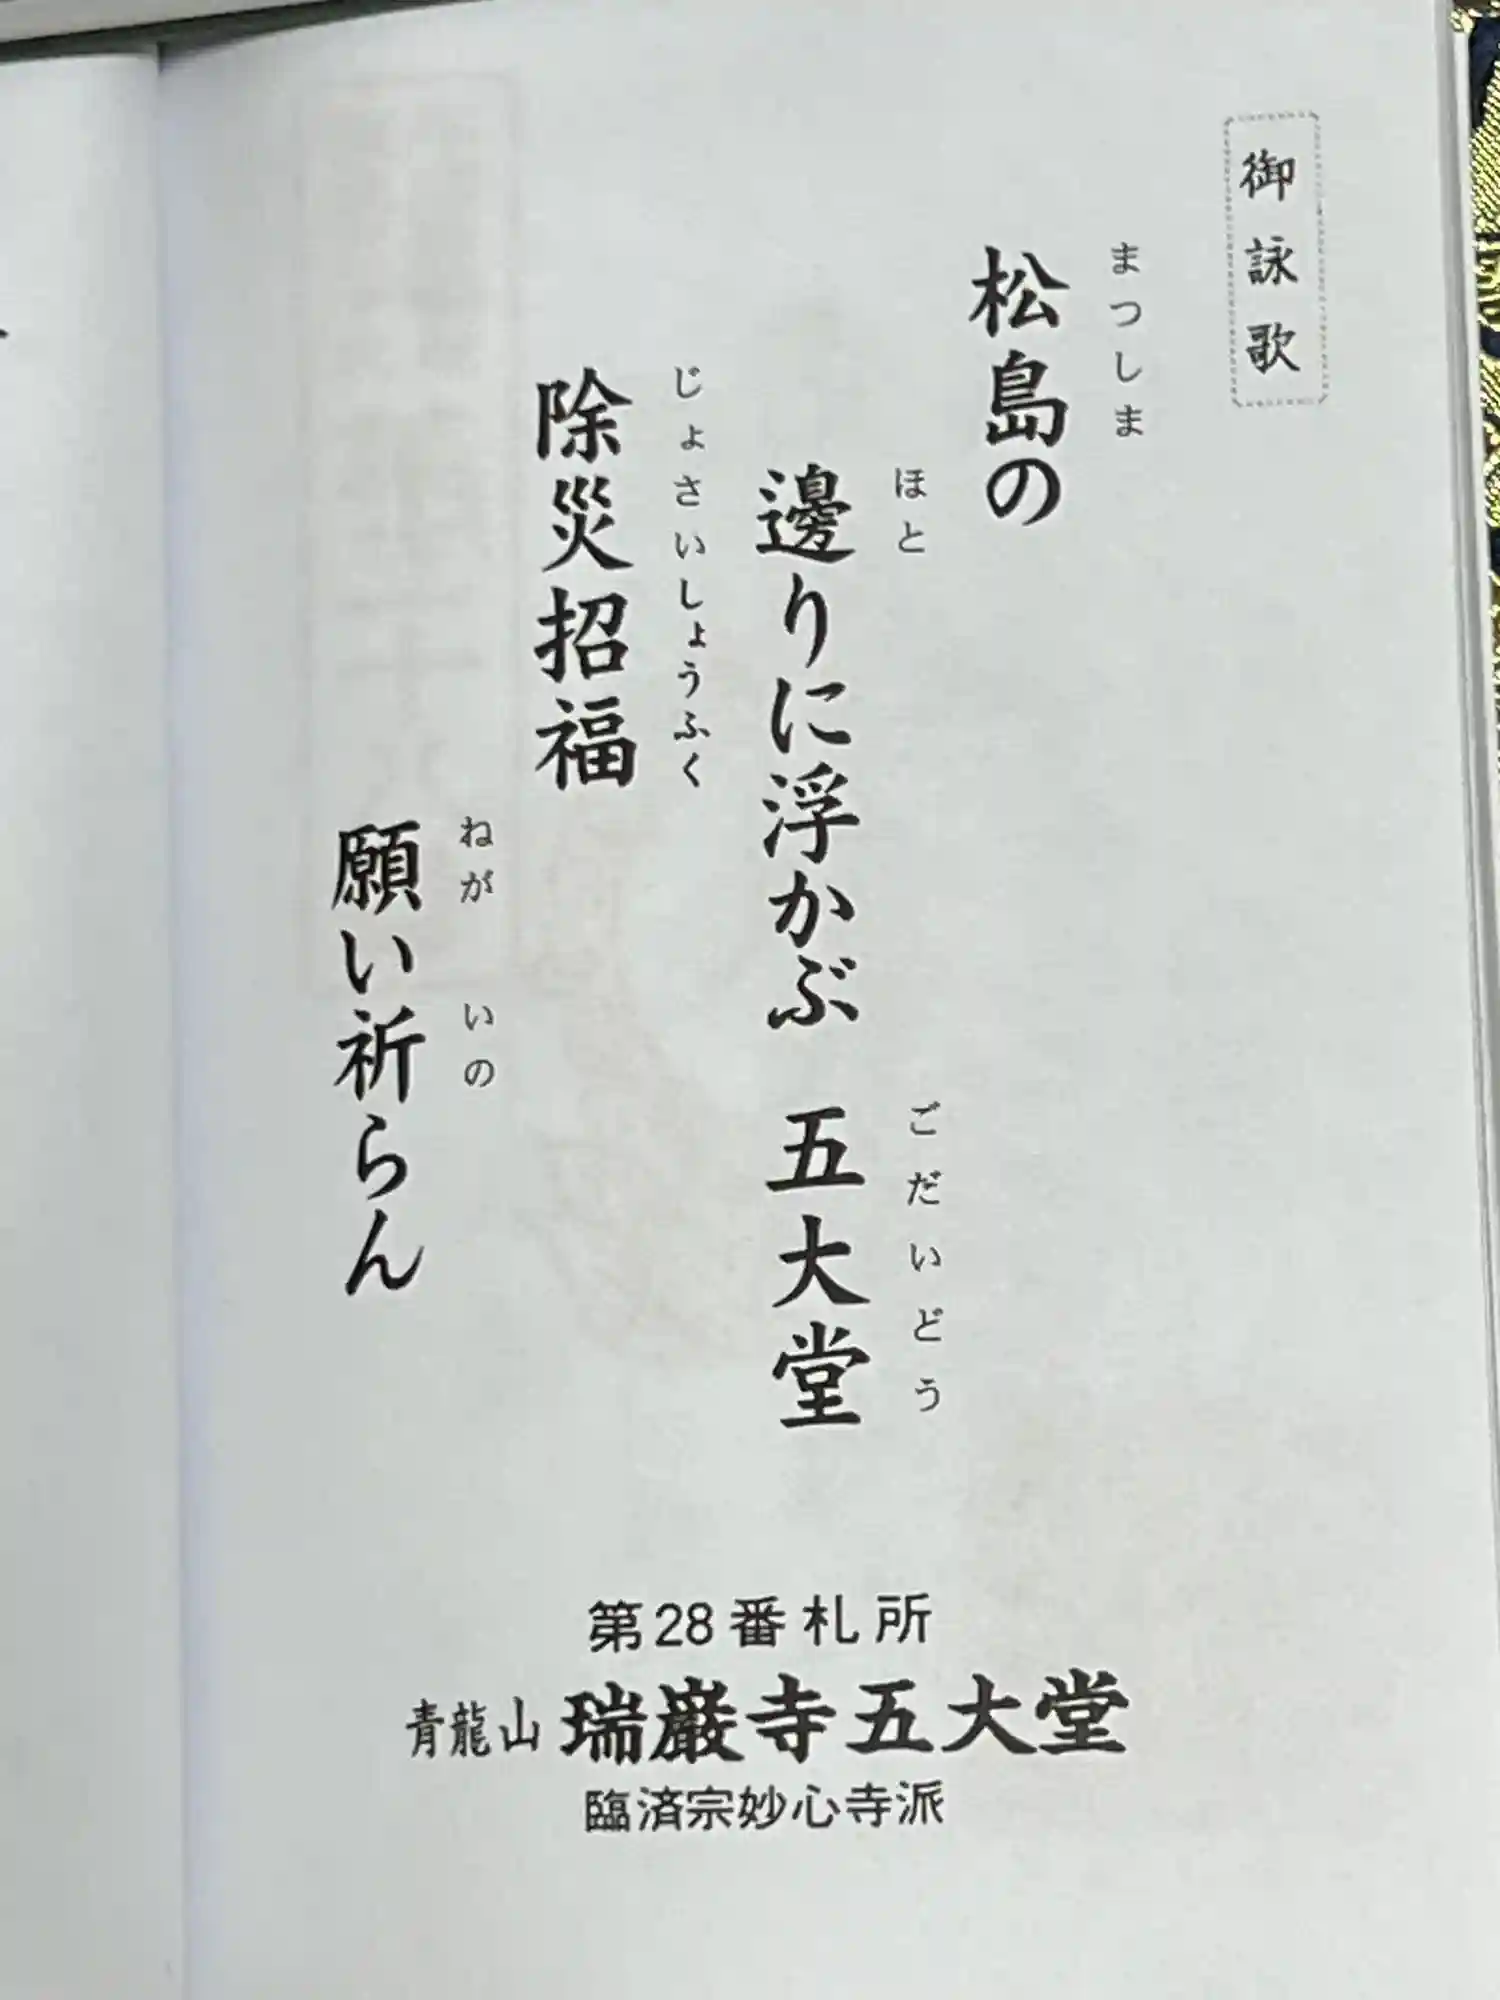 御詠歌
まつしま
松島の
ほと ごだいどう
邊りに浮かぶ 五大堂
じょさいしょうふく
除災招福
ねが いの
願い祈らん
第28番札所
青龍山 瑞巌寺五大堂
臨済宗妙心寺派